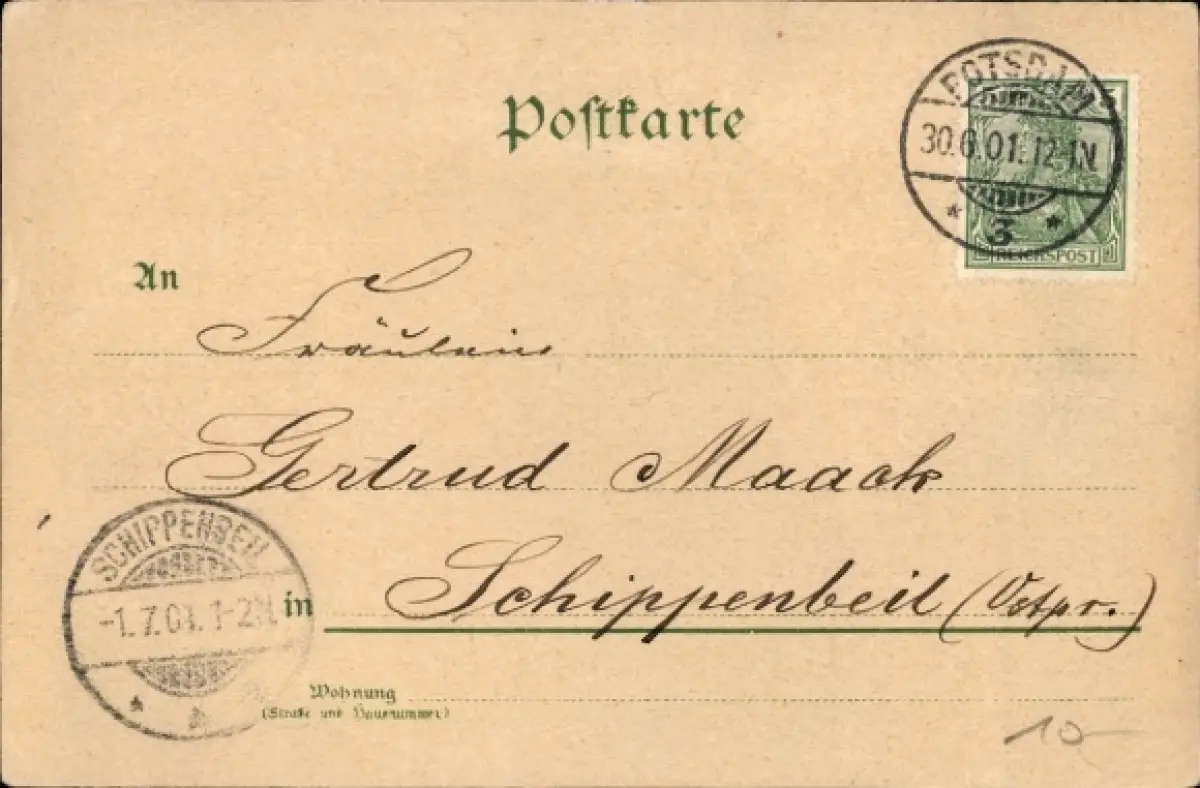 Postkarte
POTSDAM
30.6.01. 12-1N.
* 3 *
REICHSPOST
An
Fräulein
Gertrud Maack
SCHIPPENBEIL
-1.7.01. 1-2N.
in Schippenbeil (Ostpr.)
Wohnung
(Straße und Hausnummer)
10-